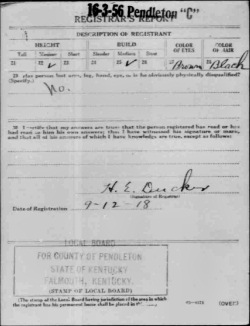 16-3-56 Pendleton "C"
REGISTRAR'S REPORT
DESCRIPTION OF REGISTRANT
HEIGHT BUILD COLOR OF EYES COLOR OF HAIR
Tall Medium Short Slender Medium Stout
21 22 ✓ 23 24 25 ✓ 26 27 Brown 28 Black
29 Has person lost arm, leg, hand, eye, or is he obviously physically disqualified?
(Specify.)
No.
30 I certify that my answers are true; that the person registered has read or has
had read to him his own answers; that I have witnessed his signature or mark,
and that all of his answers of which I have knowledge are true, except as follows:
H. E.
(Signature of Registrar)
Date of Registration 9-12-18
LOCAL BOARD
FOR COUNTY OF PENDLETON
STATE OF KENTUCKY
FALMOUTH, KENTUCKY.
(STAMP OF LOCAL BOARD)
(The stamp of the Local Board having jurisdiction of the area in which
the registrant has his permanent home shall be placed in this box.)
(OVER)